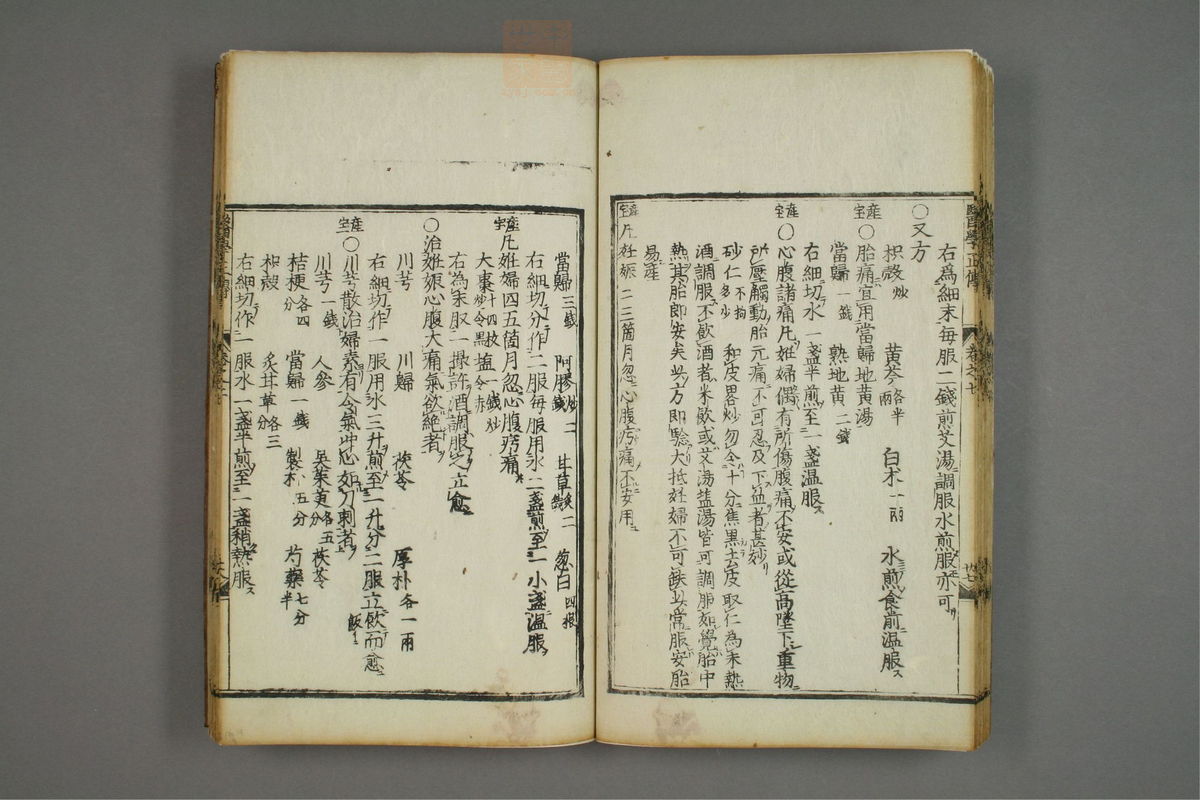 右爲細末毎服二錢煎艾湯調服水煎服亦可
○又方
枳殼炒 黄芩各半兩 白朮一兩 水煎食前温服ス
産宝 ○胎痛宜用當歸地黄湯
當歸一錢 熟地黄二錢
右細切水一盞半煎至一盞温服ス
産宝 ○心腹諸痛凡妊婦偶有所傷腹痛不安或從高墜下重物
所壓觸動胎元痛不可忍及下血者甚妙
砂仁不拘多少 和皮畧炒勿令十分焦黒去皮取仁為末熱
酒調服不飲酒者米飲或艾湯塩湯皆可調服如覺胎中
熱其胎即安矣此方即驗大抵妊婦不可缺此常服安胎
易産
産宝 凡妊娠二三箇月忽心腹疞痛不安用
當歸三錢 阿膠炒二錢 甘草炙二錢 葱白四根
右細切分作二服毎服用水二盞煎至一小盞温服
産宝 凡妊婦四五箇月忽心腹疞痛
大棗十四枚炒令黒 塩一錢炒令赤
右為末取一撮許酒調服之立愈
○治妊娠心腹大痛氣欲絶者
川芎 川歸 茯苓 厚朴各一兩
右細切作一服用水三升煎至一升分二服立飲而愈
産宝 ○川芎散治婦素有冷氣冲心如刀刺者
川芎一錢 人參 呉茱萸各五分 茯苓
桔梗各四分 當歸一錢 製朴五分 芍藥七分半
枳殼 炙甘草各三分
右細切作一服水一盞半煎至一盞稍熱服
醫學正傳 卷之七 廿七